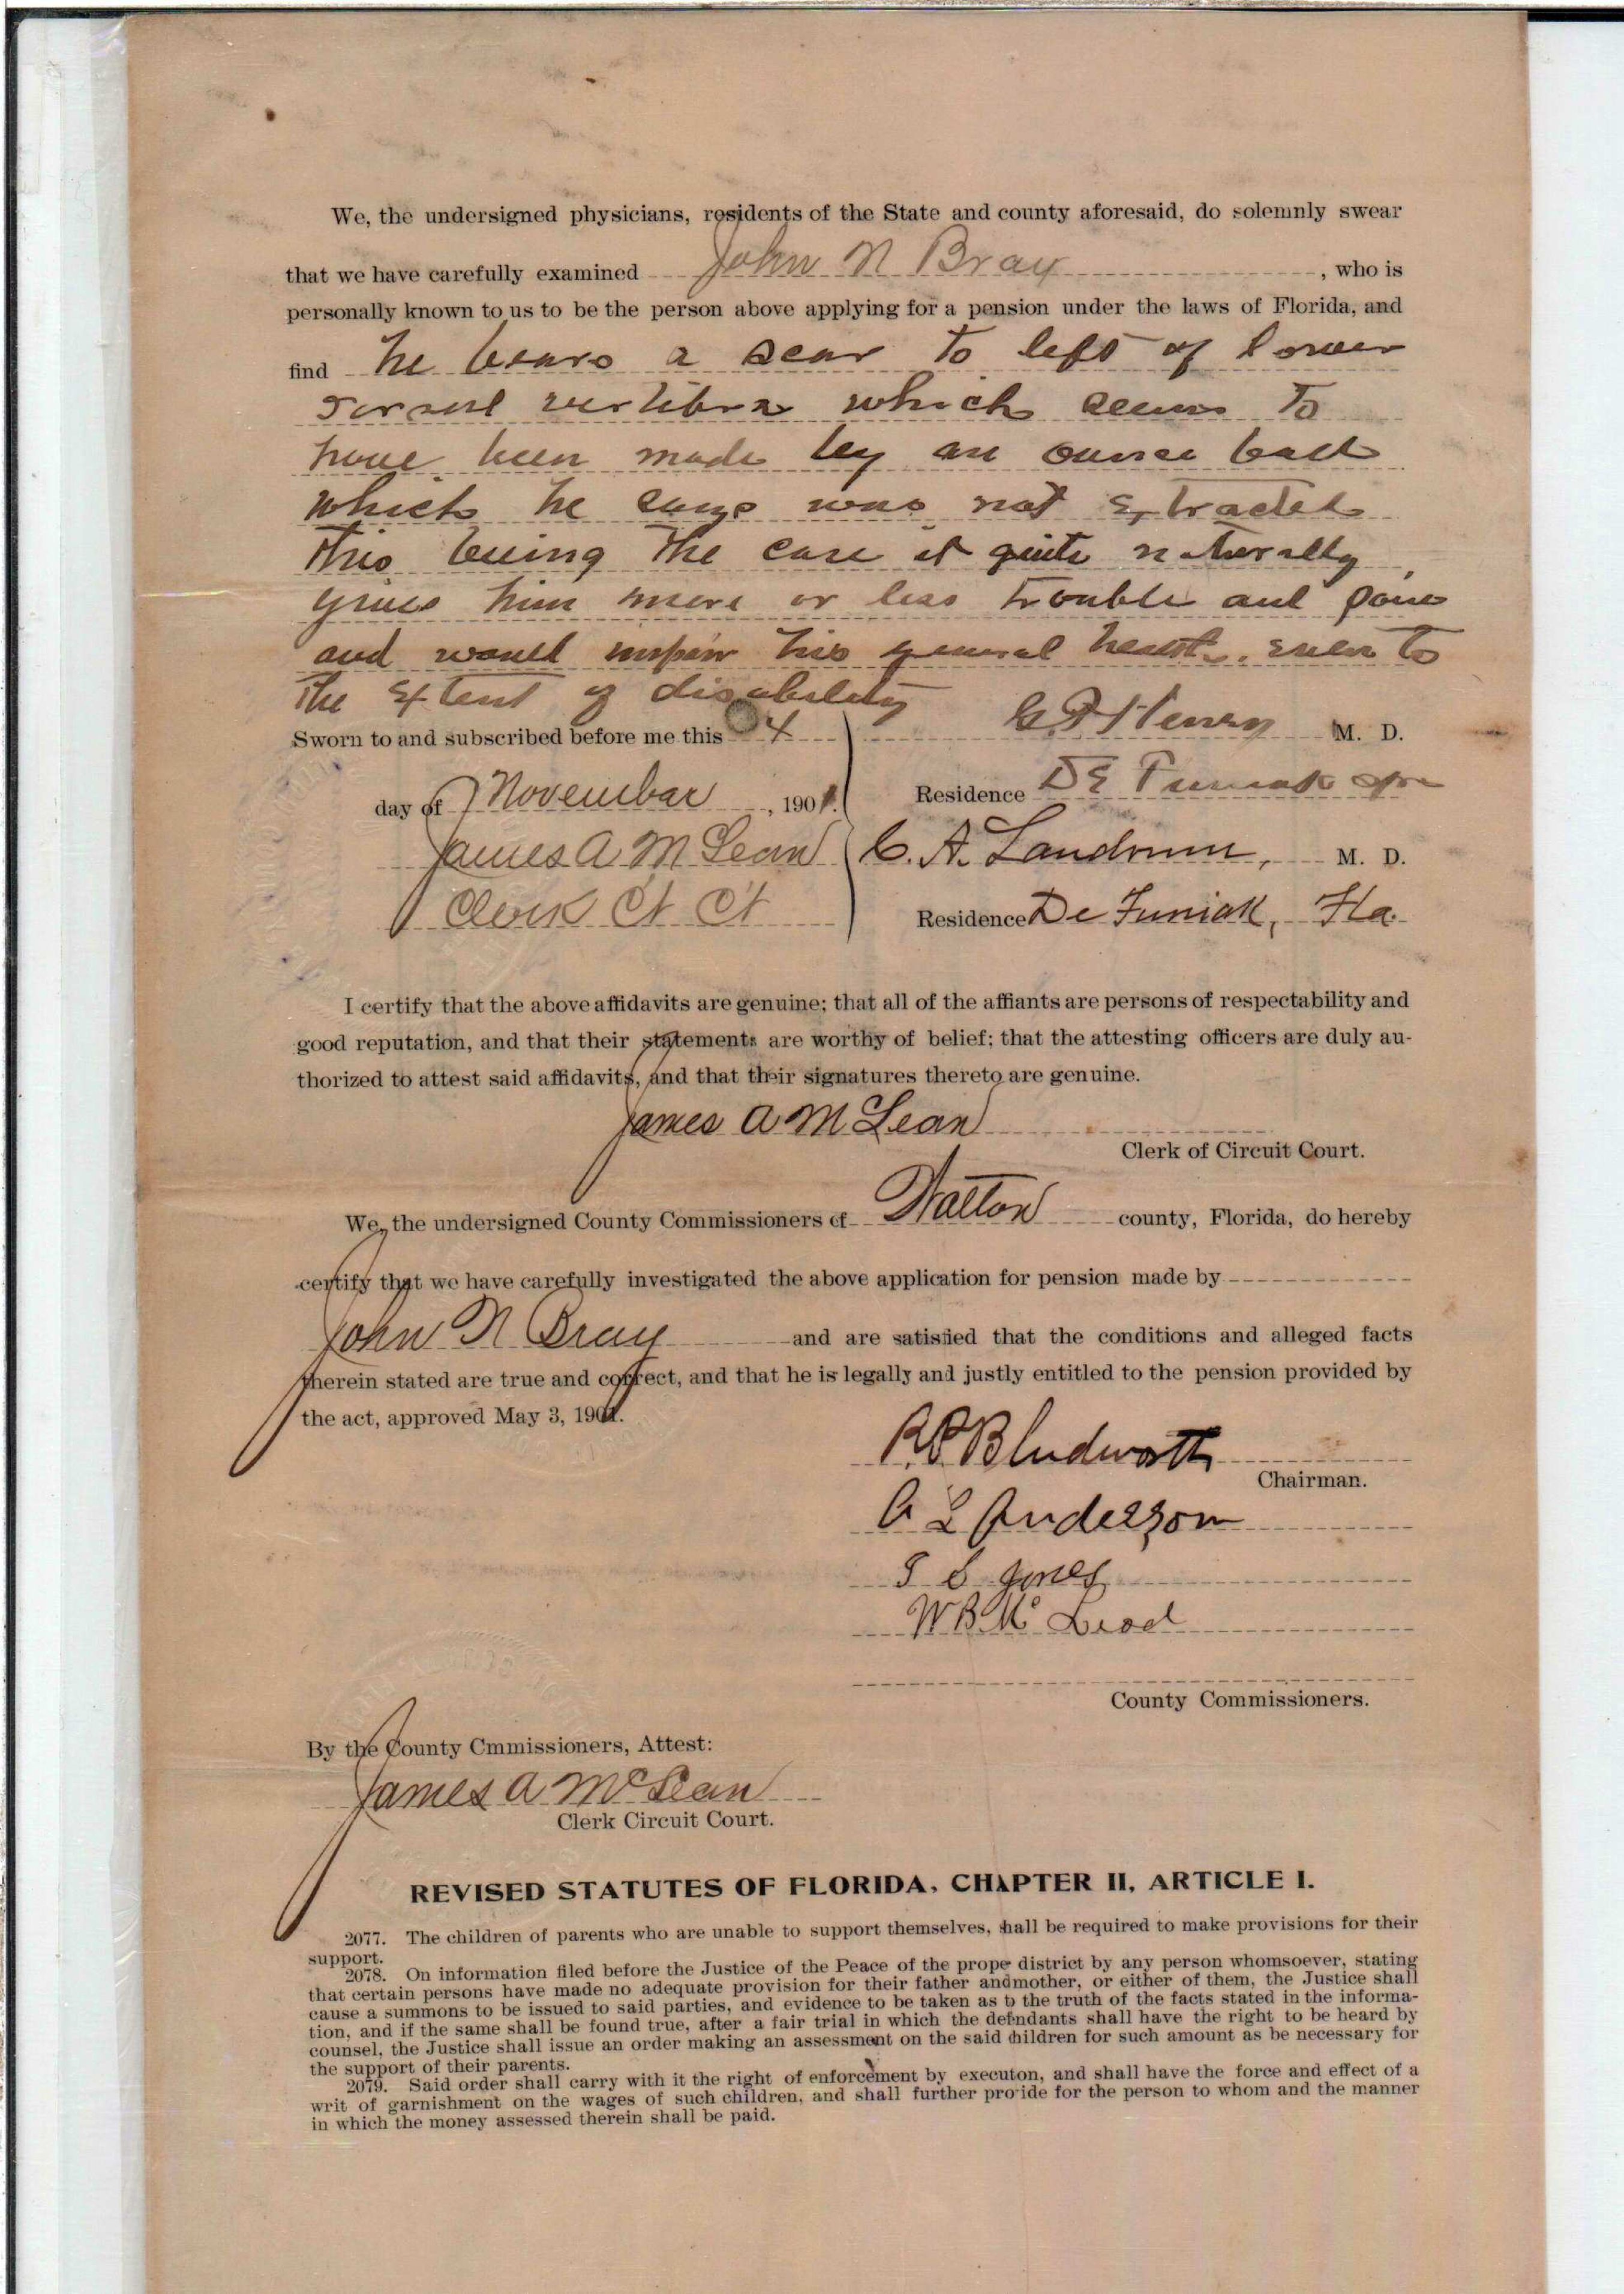 We, the undersigned physicians, residents of the State and county aforesaid, do solemnly swear
that we have carefully examined John N Bray, who is
personally known to us to be the person above applying for a pension under the laws of Florida, and
find he bears a scar to left of lower
dorsal vertibra which seems to
have been made by an ounce ball
which he says was not extracted
this being the case it quite naturally
gives him more or less trouble and pain
and would impair his general health, even to
the extent of disability
Sworn to and subscribed before me this 4
Henry M. D.
day of November, 1901.
Residence De Funiak Spr
James A McLean
C. A. Landrum, M. D.
Clerk Ct Ct
Residence De Funiak, Fla.
I certify that the above affidavits are genuine; that all of the affiants are persons of respectability and
good reputation, and that their statements are worthy of belief; that the attesting officers are duly au-
thorized to attest said affidavits, and that their signatures thereto are genuine.
James A McLean
Clerk of Circuit Court.
We, the undersigned County Commissioners of Walton county, Florida, do hereby
certify that we have carefully investigated the above application for pension made by
John N Bray and are satisfied that the conditions and alleged facts
therein stated are true and correct, and that he is legally and justly entitled to the pension provided by
the act, approved May 3, 1901.
Bludworth
Chairman.
A L Anderson
S S Jones
W B McLeod
County Commissioners.
By the County Cmmissioners, Attest:
James A McLean
Clerk Circuit Court.
REVISED STATUTES OF FLORIDA, CHAPTER II, ARTICLE I.
2077. The children of parents who are unable to support themselves, shall be required to make provisions for their
support.
2078. On information filed before the Justice of the Peace of the prope district by any person whomsoever, stating
that certain persons have made no adequate provision for their father andmother, or either of them, the Justice shall
cause a summons to be issued to said parties, and evidence to be taken as to the truth of the facts stated in the informa-
tion, and if the same shall be found true, after a fair trial in which the defendants shall have the right to be heard by
counsel, the Justice shall issue an order making an assessment on the said children for such amount as be necessary for
the support of their parents.
2079. Said order shall carry with it the right of enforcement by executon, and shall have the force and effect of a
writ of garnishment on the wages of such children, and shall further provide for the person to whom and the manner
in which the money assessed therein shall be paid.